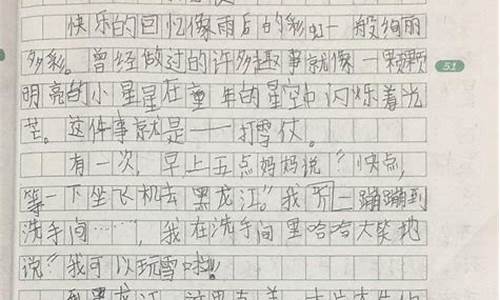 快乐的回忆像雨后的彩虹一般绚丽
多彩。曾经做过的许多趣事就像一颗颗
51
明亮的小星星在童年的星空中闪烁着光
芒。这件事就是——打雪仗。
有一次，早上五点妈妈说"快点，
等一下坐飞机去黑龙江。"我一蹦蹦到
洗手间……，我在洗手间里哈哈大笑地
说"我可以玩雪啦！"